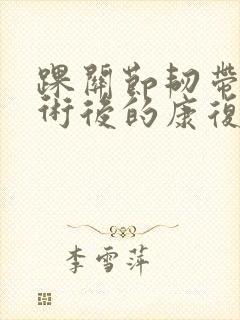 踝關節韌帶
術後的康復
李雪萍